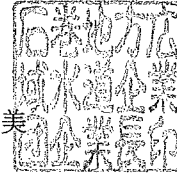 石巻地方広
域水道企業
団企業長印
美